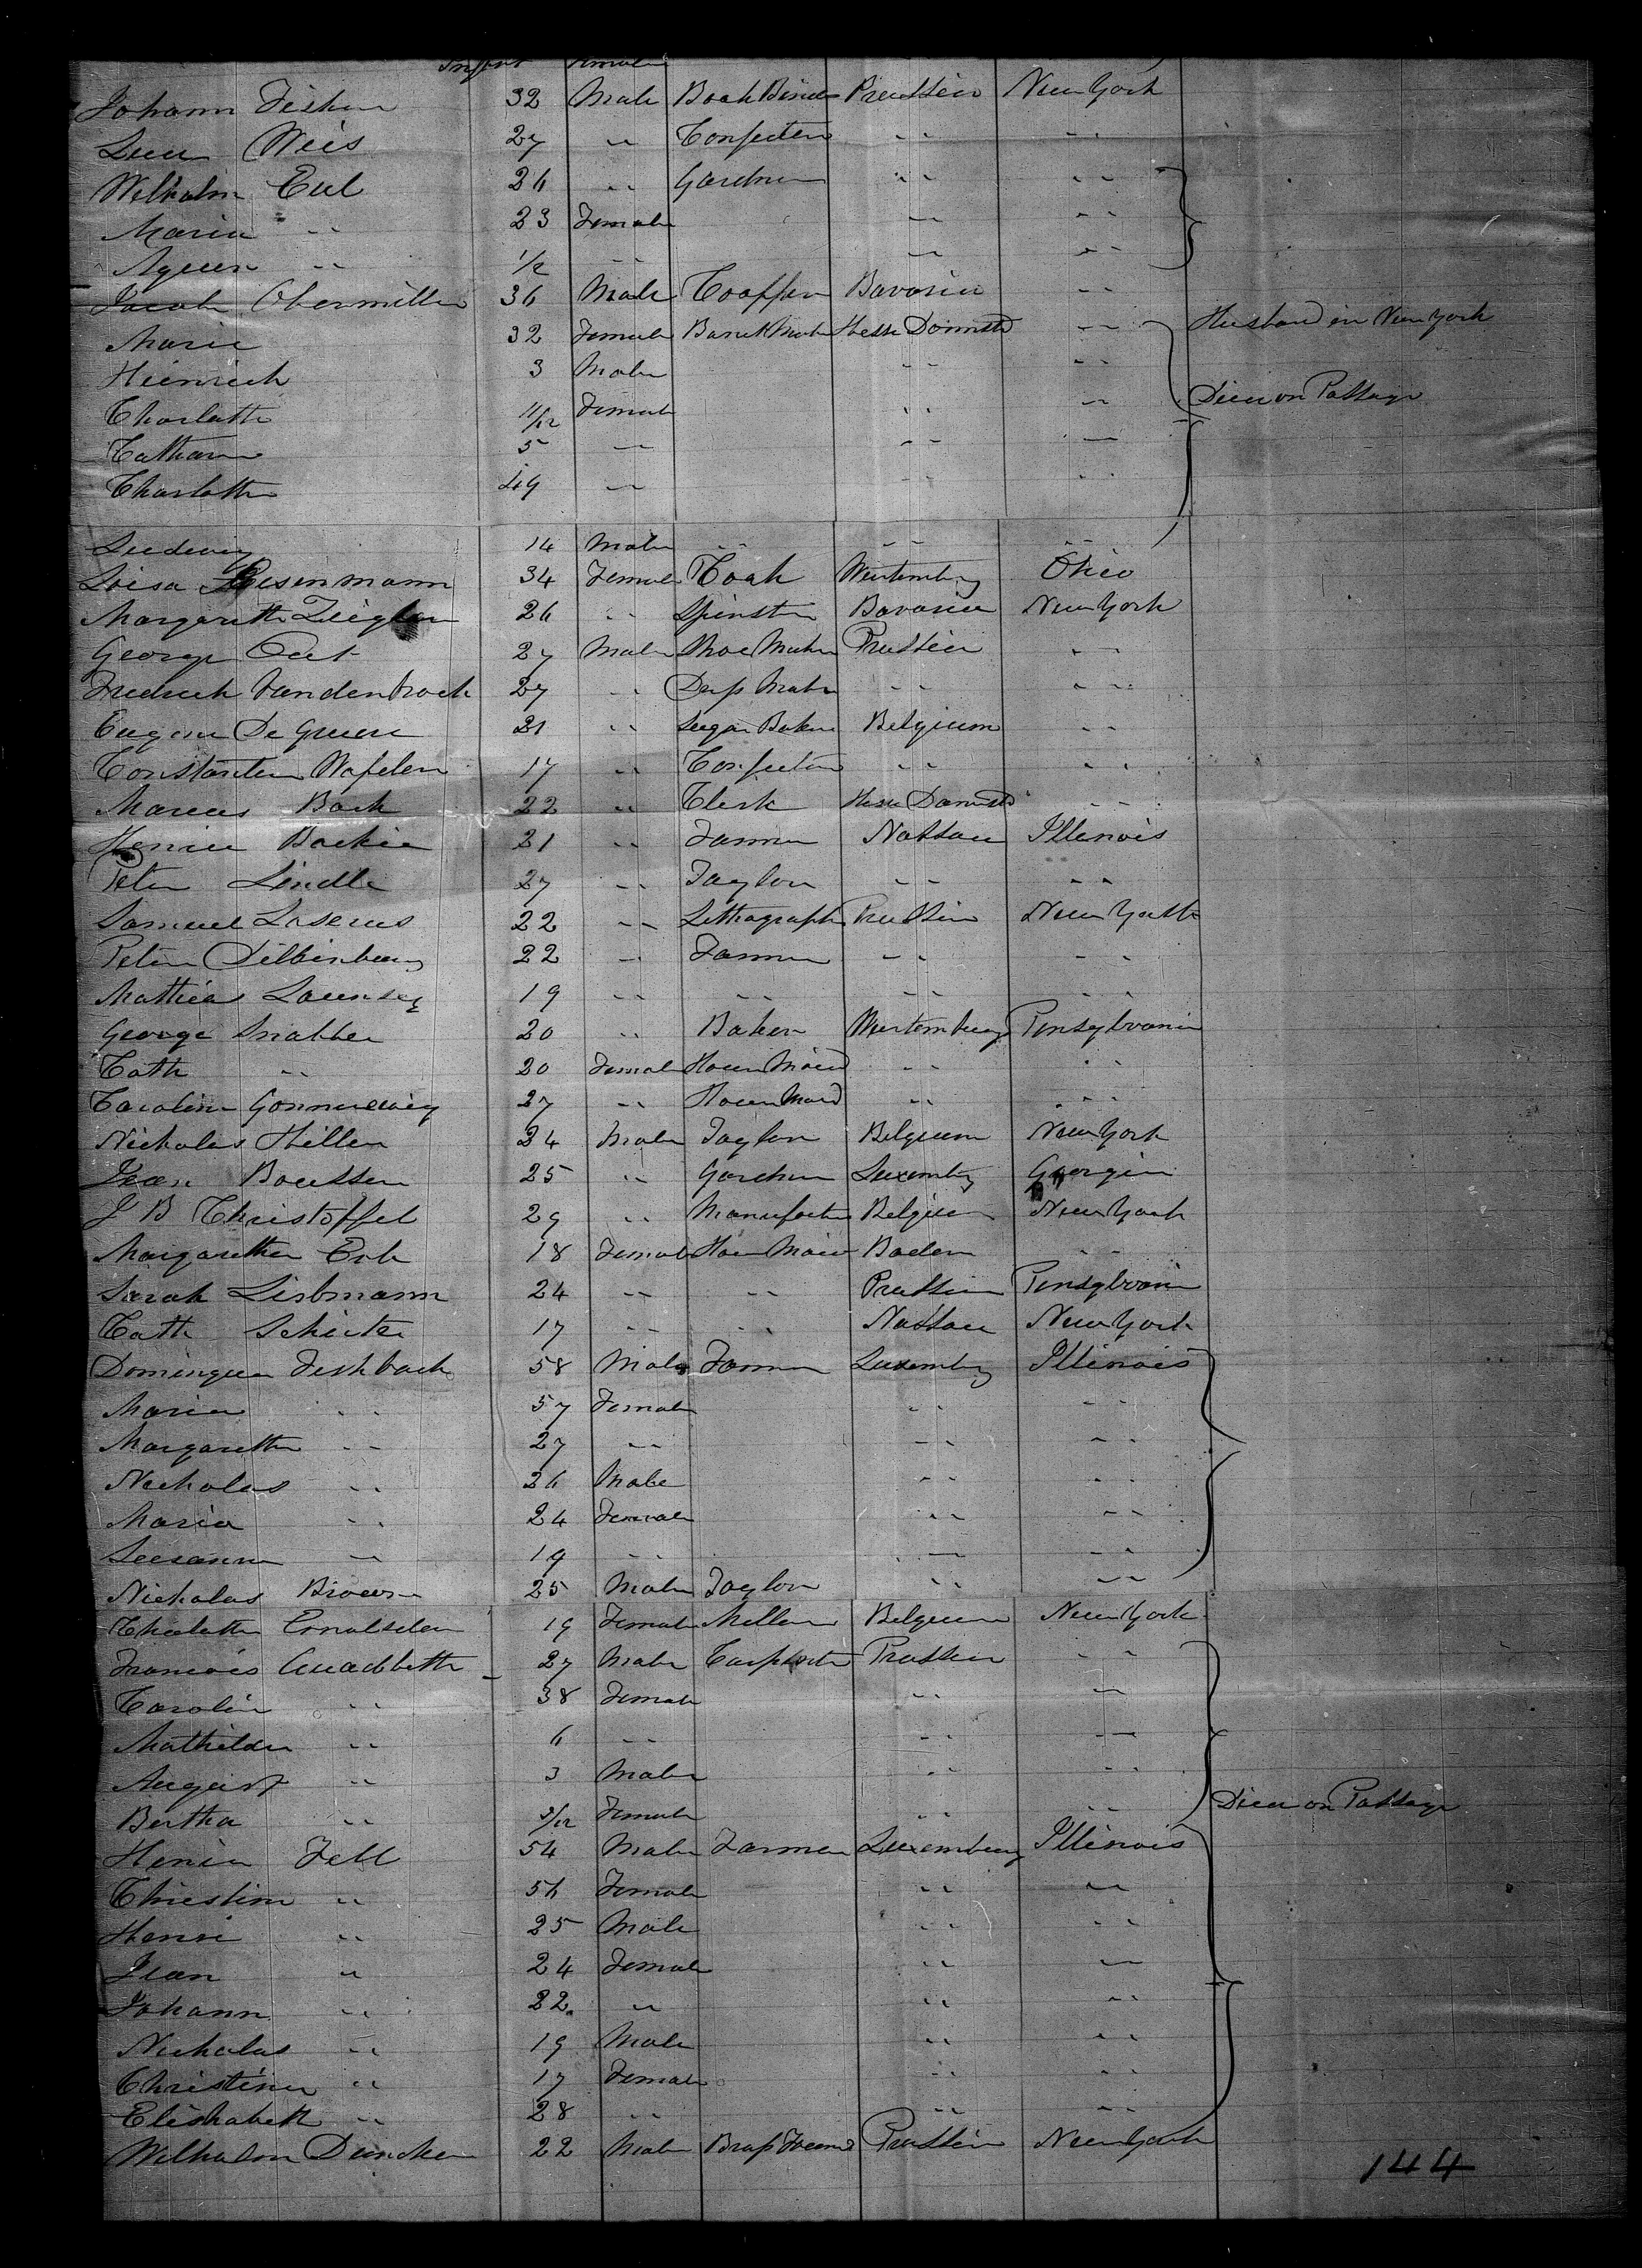 Infant Female
Johann Fisher 32 Male Book Binder Prussia New York
Weis 27 " Confectoner " "
Wilhelm Eul 26 " Gardner " "
Maria " 23 Female " "
" 1/2 " " "
Jacob Obermiller 36 Male Bavaria "
Marie 32 Female Hesse Darmstd " Husband in New York
Heinrich 3 Male " "
Charlotte 11/12 Female " " Died on Passage
Catharine 5 " " "
Charlotte 49 " " "
Ludewig 14 Male " " "
Loisa Reisenmann 34 Female Cook Wurtemburg Ohio
Margareth Zeigler 26 " Spinster Bavaria New York
George 27 Male Shoe Maker Prussia "
Frederick Vandenbroek 27 " Maker " "
Eugene De 21 " Sugar Baker Belgium "
Constanten 17 " Confectoner " "
Marcus Bach 22 " Clerk Hesse Darmstd "
21 " Farmer Nassau Illenois
Peter Lindle 27 " Taylor " "
Samuel Laserus 22 " Lithograph Prussia New York
Peter Dillinburg 22 " Farmer " "
Mathias 19 " " " "
George 20 " Baker Wurtemburg Pensylvania
Cath " 20 Female House Maid " "
Caroline 27 " House Maid " "
Nicholas Hillen 24 Male Taylor Belgium New York
Jean Boussen 25 " Gardner Luxemburg Georgia
J B Christoffel 29 " Manufactur Belgium New York
Margaretha Erb 18 Female House Maid Baden "
Sarah Lisbmann 24 " " Prussia Pensylvania
Cath 17 " " Nassau New York
Dominque Feshbach 58 Male Farmer Luxemburg Illinois
Maria " 57 Female " "
Margaretha " 27 " " "
Nicholas " 26 Male " "
Maria " 24 Female " "
Susanna " 19 " " "
Nicholas 25 Male Taylor " "
19 Female Belgium New York
Francois 27 Male Carpenter Prussia "
Carolin " 38 Female " "
Mathilda " 6 " " "
August " 3 Male " "
Bertha " Female " " Died on Passage
Henri Fell 54 Male Farmer Luxemburg Illinois
Christina " 56 Female " "
Henri " 25 Male " "
Jean " 24 Female " "
Johann " 22 " " "
Nicholas " 19 Male " "
Christina " 17 Female " "
Elishabeth " 28 " " "
Wilhelm Duncker 22 Male Brass Prussia New York
144